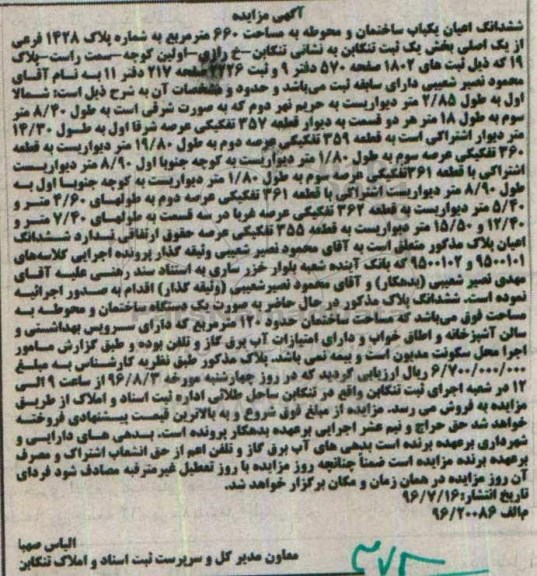 آگهی مزایده
ششدانگ اعیان یکباب ساختمان و محوطه به مساحت ۶۶۰ مترمربع به شماره پلاک ۱۴۲۸ فرعی
از یک اصلی بخش یک ثبت تنکابن به نشانی تنکابن-خ رازی-اولین کوچه -سمت راست-پلاک
۱۹ که ذیل ثبت های ۱۸۰۲ صفحه ۵۷۰ دفتر ۹ و ثبت ۲۲۲۶ صفحه ۲۱۷ دفتر ۱۱ به نام آقای
محمود نصیر شعیبی دارای سابقه ثبت می‌باشد و حدود و مشخصات آن به شرح ذیل است: شمالا
اول به طول ۲/۸۵ متر دیواریست به حریم نهر دوم که به صورت شرقی است به طول ۸/۴۰ متر
سوم به طول ۱۸ متر هر دو قسمت به دیوار قطعه ۳۵۷ تفکیکی عرصه شرقا اول به طول ۱۴/۳۰
متر دیوار اشتراکی است به قطعه ۳۵۹ تفکیکی عرصه دوم به طول ۱۹/۸۰ متر دیواریست به قطعه
۳۶۰ تفکیکی عرصه سوم به طول ۱/۸۰ متر دیواریست به کوچه جنوبا اول ۸/۹۰ متر دیواریست
اشتراکی با قطعه ۳۶۱ تفکیکی عرصه سوم به طول ۱/۸۰ متر دیواریست به کوچه جنوبا اول به
طول ۸/۹۰ متر دیواریست اشتراکی با قطعه ۳۶۱ تفکیکی عرصه دوم به طولهای ۴/۶۰ متر و
۵/۴۰ متر دیواریست به قطعه ۳۶۲ تفکیکی عرصه غربا در سه قسمت به طولهای ۷/۴۰ متر و
۱۲/۴۰ و ۱۵/۵۰ متر دیواریست به قطعه ۳۵۵ تفکیکی عرصه حقوق ارتفاقی ندارد ششدانگ
اعیان پلاک مذکور متعلق است به آقای محمود نصیر شعیبی وثیقه گذار پرونده اجرایی کلاسه‌های
۹۵۰۰۱۰۱ و ۹۵۰۰۱۰۲ که بانک آینده شعبه بلوار خزر ساری به استناد سند رهنی علیه آقای
مهدی نصیر شعیبی (بدهکار) و آقای محمود نصیرشعیبی (وثیقه گذار) اقدام به صدور اجرائیه
نموده است. ششدانگ پلاک مذکور در حال حاضر به صورت یک دستگاه ساختمان و محوطه به
مساحت فوق می‌باشد که مساحت ساختمان حدود ۱۲۰ مترمربع که دارای سرویس بهداشتی و
سالن آشپزخانه و اطاق خواب و دارای امتیازات آب برق گاز و تلفن بوده و طبق گزارش مامور
اجرا محل سکونت مدیون است و بیمه نمی باشد. پلاک مذکور طبق نظریه کارشناس به مبلغ
۶/۷۰۰/۰۰۰/۰۰۰ ریال ارزیابی گردید که در روز چهارشنبه مورخه ۹۶/۸/۳ از ساعت ۹ الی
۱۲ در شعبه اجرای ثبت تنکابن واقع در تنکابن ساحل طلائی اداره ثبت اسناد و املاک از طریق
مزایده به فروش می رسد. مزایده از مبلغ فوق شروع و به بالاترین قیمت پیشنهادی فروخته
خواهد شد حق حراج و نیم عشر اجرایی برعهده بدهکار پرونده است. بدهی های دارایی و
شهرداری برعهده برنده است بدهی های آب برق گاز و تلفن اعم از حق انشعاب اشتراک و مصرف
برعهده برنده مزایده است ضمناً چنانچه روز مزایده با روز تعطیل غیرمترقبه مصادف شود فردای
آن روز مزایده در همان زمان و مکان برگزار خواهد شد.
تاریخ انتشار: ۹۶/۷/۱۶
م‌الف ۹۶/۲۰۰۸۶
الیاس صهبا
معاون مدیر کل و سرپرست ثبت اسناد و املاک تنکابن